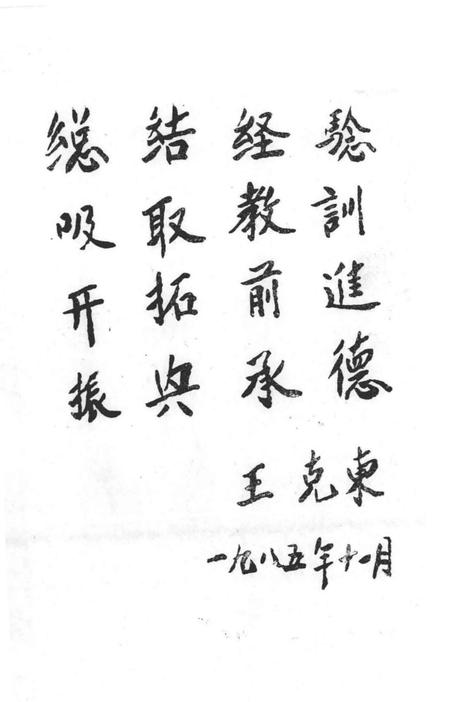 總結経騐
吸取教訓
开拓前進
振興承德
王克東
一九八五年十一月